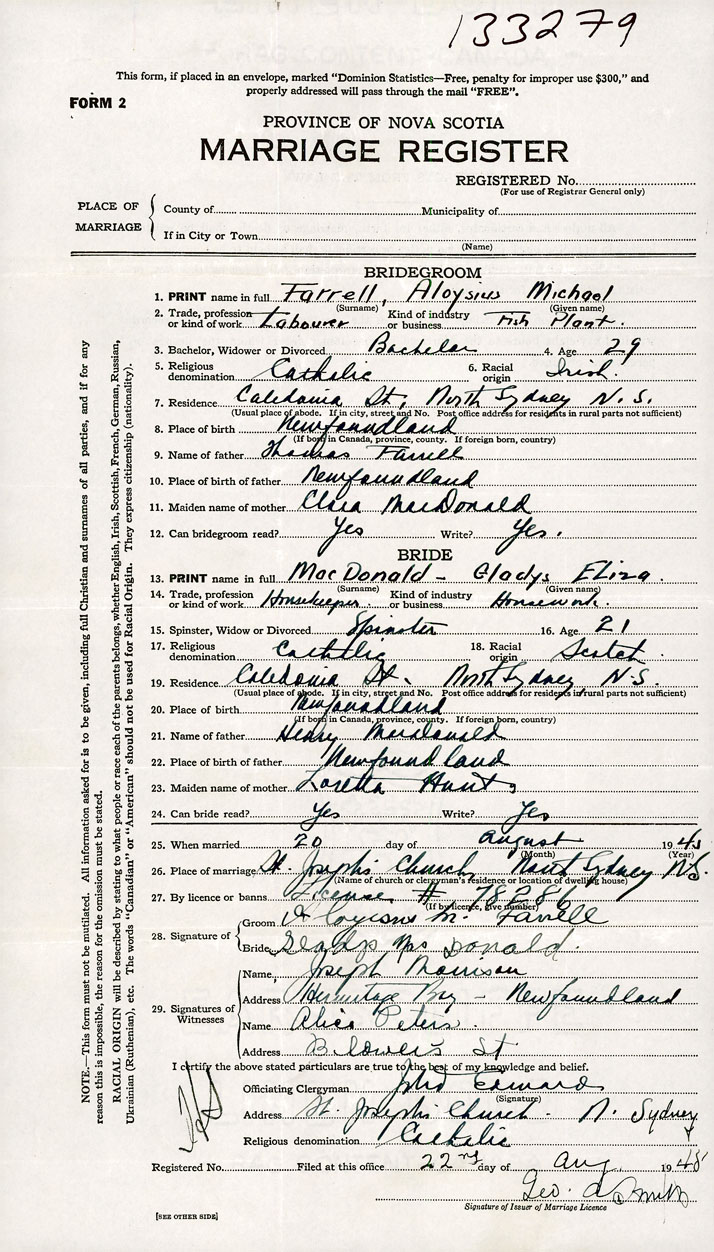 133279
This form, if placed in an envelope, marked "Dominion Statistics—Free, penalty for improper use $300," and
properly addressed will pass through the mail "FREE".
FORM 2
PROVINCE OF NOVA SCOTIA
MARRIAGE REGISTER
REGISTERED No.
(For use of Registrar General only)
PLACE OF MARRIAGE
County of Municipality of
If in City or Town
(Name)
BRIDEGROOM
1. PRINT name in full Farrell, Aloysius Michael
(Surname) (Given name)
2. Trade, profession or kind of work Labourer Kind of industry or business Fish Plant.
3. Bachelor, Widower or Divorced Bachelor 4. Age 29
5. Religious denomination Catholic 6. Racial origin Irish.
7. Residence Caledonia St, North Sydney N.S.
(Usual place of abode. If in city, street and No. Post office address for residents in rural parts not sufficient)
8. Place of birth Newfoundland
(If born in Canada, province, county. If foreign born, country)
9. Name of father Thomas Farrell
10. Place of birth of father Newfoundland
11. Maiden name of mother Clara MacDonald
12. Can bridegroom read? Yes Write? Yes.
BRIDE
13. PRINT name in full MacDonald - Gladys Eliza.
(Surname) (Given name)
14. Trade, profession or kind of work Housekeeper. Kind of industry or business Housework.
15. Spinster, Widow or Divorced Spinster 16. Age 21
17. Religious denomination Catholic 18. Racial origin Scotch.
19. Residence Caledonia St. North Sydney N.S.
(Usual place of abode. If in city, street and No. Post office address for residents in rural parts not sufficient)
20. Place of birth Newfoundland
(If born in Canada, province, county. If foreign born, country)
21. Name of father Henry MacDonald
22. Place of birth of father Newfoundland
23. Maiden name of mother Loretta Hunt
24. Can bride read? Yes Write? Yes
25. When married 20 day of August 19
(Month) (Year)
26. Place of marriage St. Joseph's Church North Sydney N.S.
(Name of church or clergyman's residence or location of dwelling house)
27. By licence or banns License # 78286
(If by licence, give number)
28. Signature of
Groom Aloysius M. Farrell
Bride Gladys MacDonald.
29. Signatures of Witnesses
Name Joseph Morrison
Address Hermitage Bay - Newfoundland
Name Alice Peters.
Address Blowers St
I certify the above stated particulars are true to the best of my knowledge and belief.
Officiating Clergyman
(Signature)
Address St. Joseph's Church - N. Sydney
Religious denomination Catholic
Registered No. Filed at this office 22nd day of Aug 19
Geo. A Smith
Signature of Issuer of Marriage Licence
[SEE OTHER SIDE]
NOTE.—This form must not be mutilated. All information asked for is to be given, including full Christian and surnames of all parties, and if for any
reason this is impossible, the reason for the omission must be stated.
RACIAL ORIGIN will be described by stating to what people or race each of the parents belongs, whether English, Irish, Scottish, French, German, Russian,
Ukrainian (Ruthenian), etc. The words "Canadian" or "American" should not be used for Racial Origin. They express citizenship (nationality).